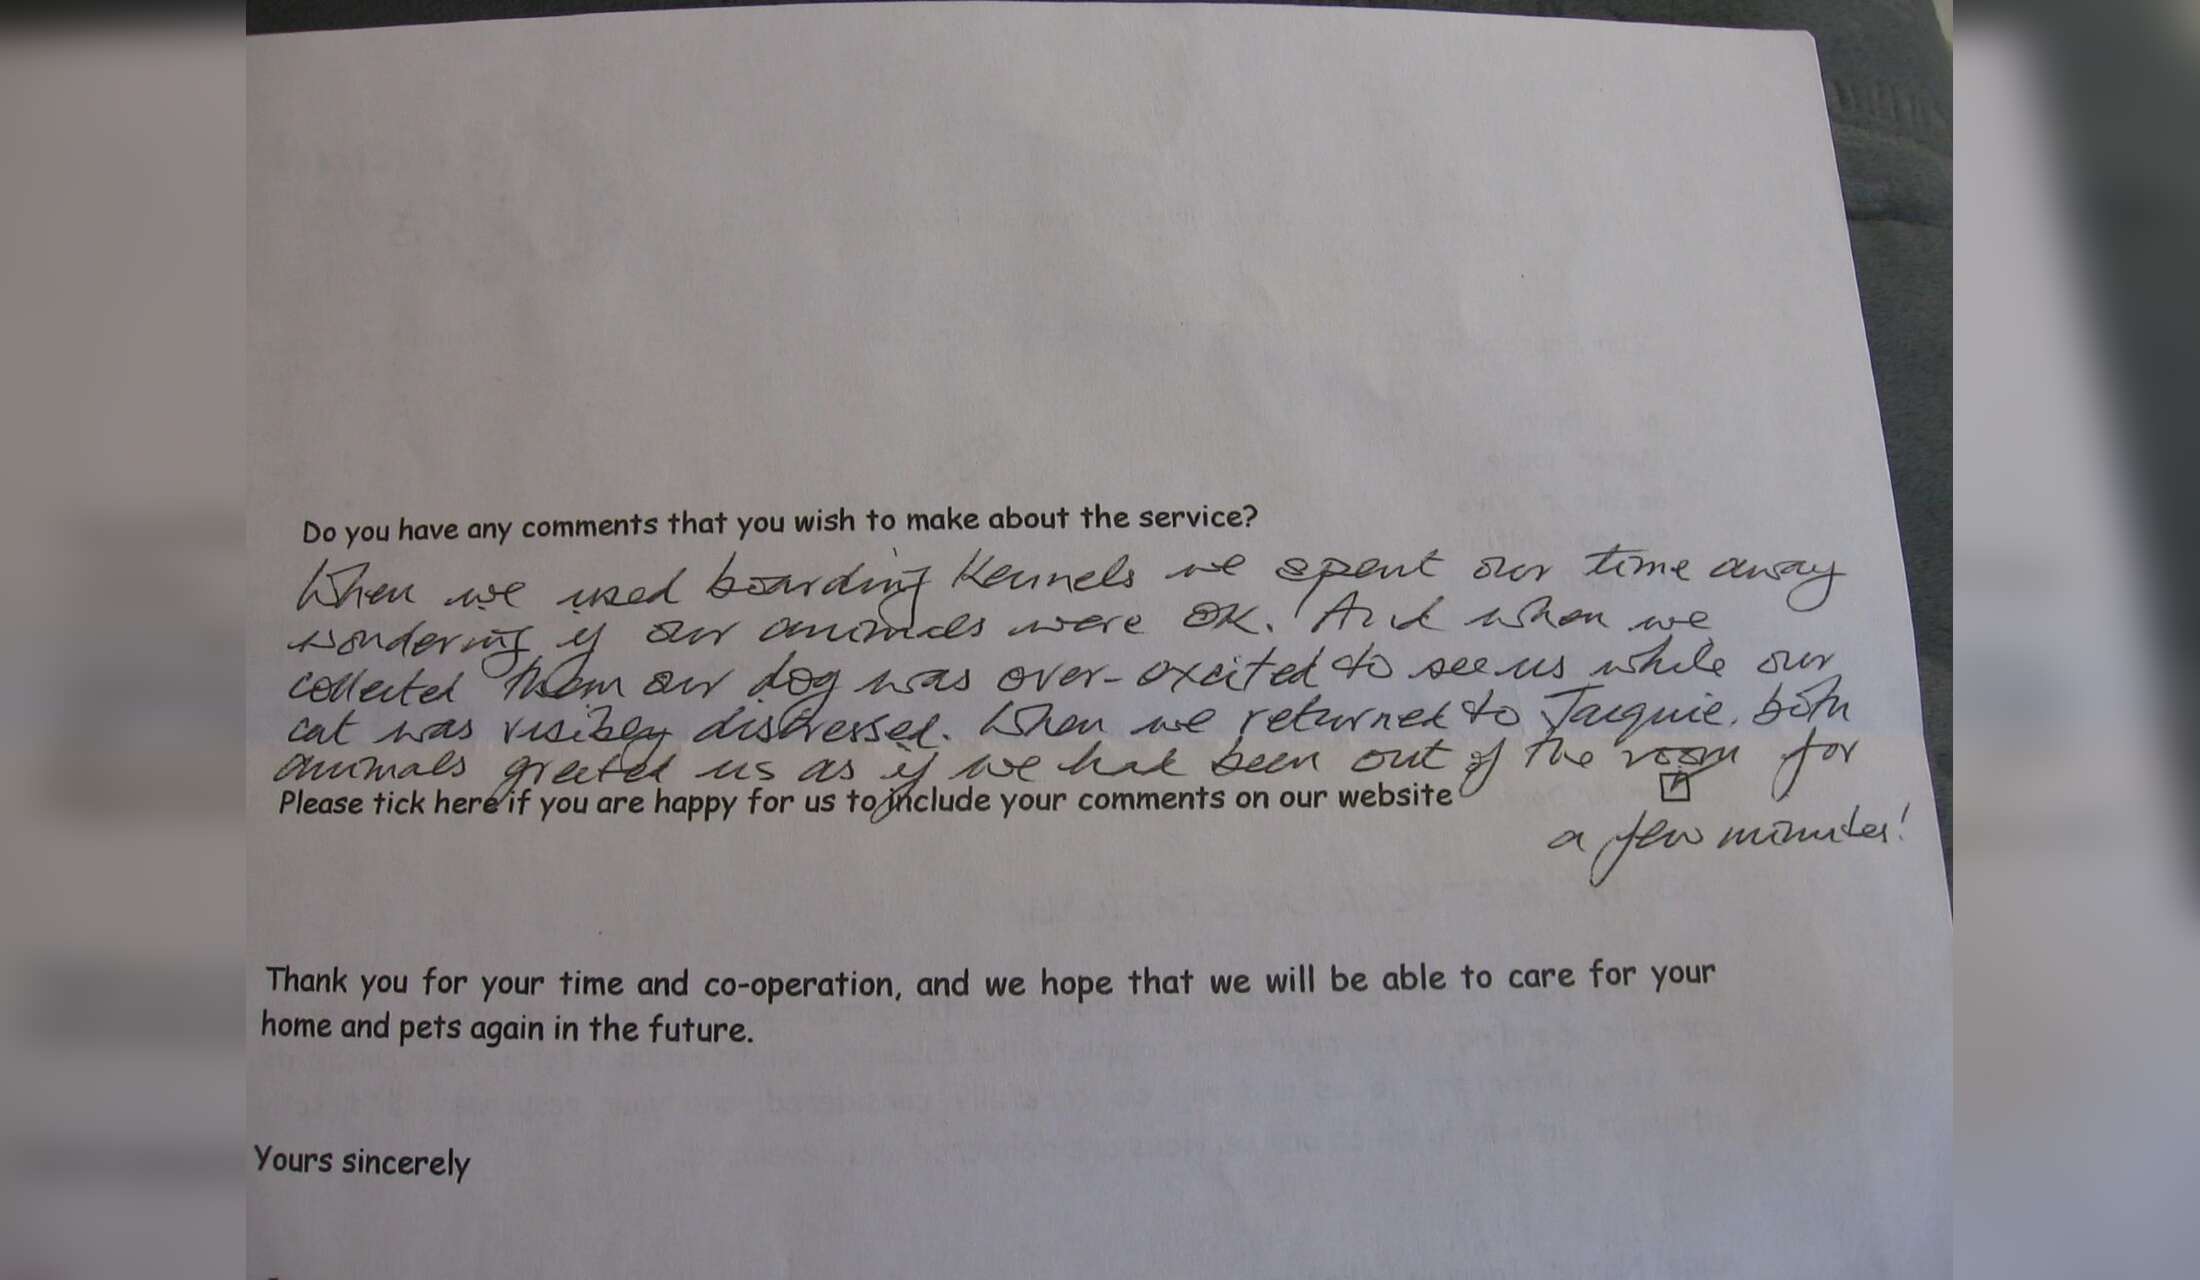 Do you have any comments that you wish to make about the service?
When we used boarding Kennels we spent our time away
wondering if our animals were OK. And when we
collected them our dog was over-excited to see us while our
cat was visibly distressed. When we returned to Jacquie, both
animals greeted us as if we had been out of the room for
Please tick here if you are happy for us to include your comments on our website
a few minutes!
Thank you for your time and co-operation, and we hope that we will be able to care for your
home and pets again in the future.
Yours sincerely